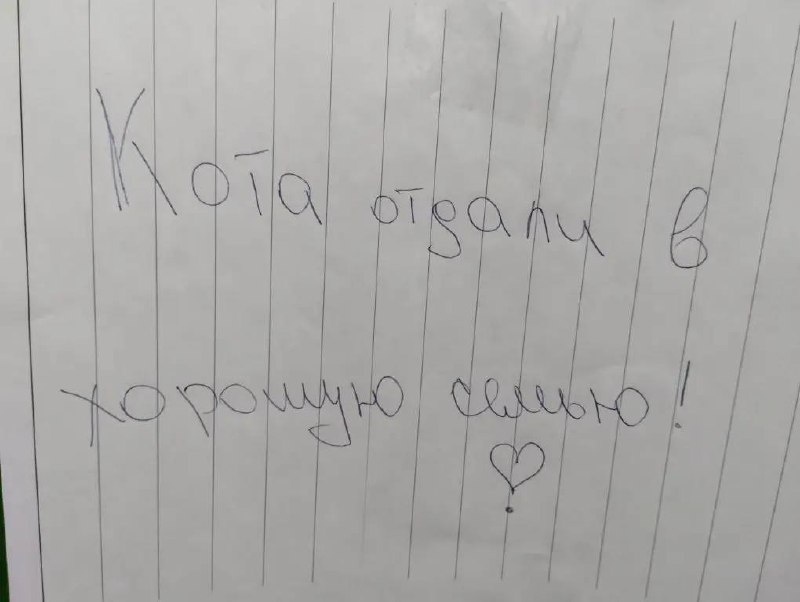 Кота отдали в
хорошую семью!